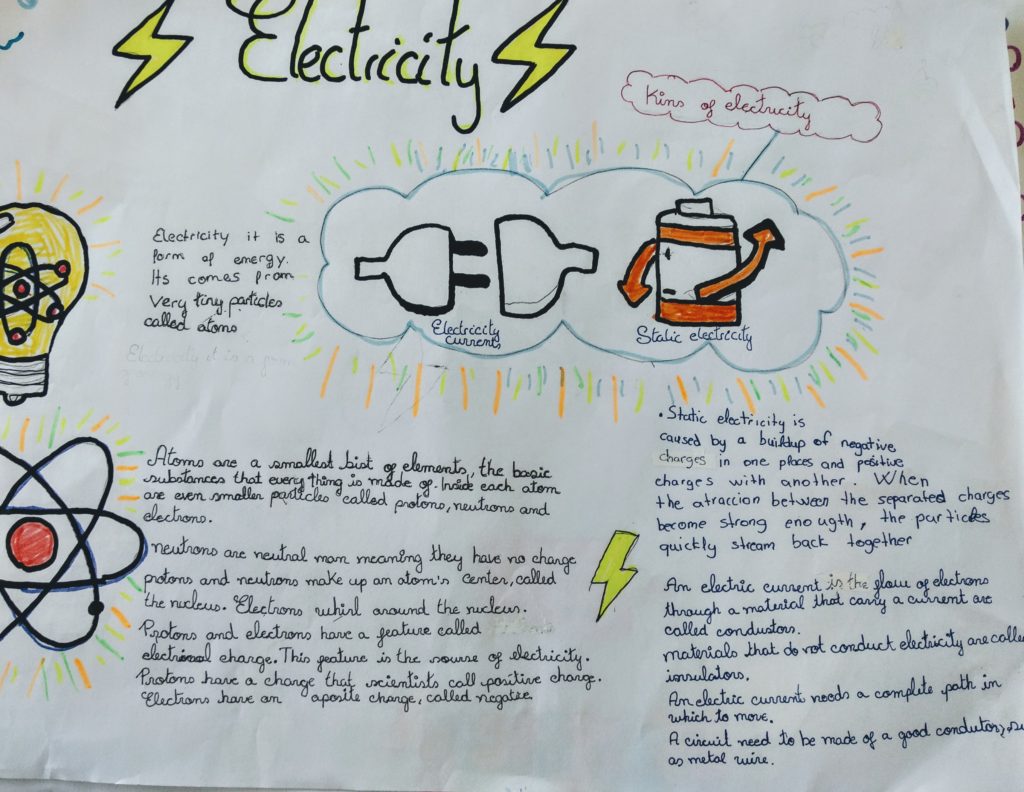 Electricity
Kins of electricity
Electricity it is a
form of energy.
Its comes from
very tiny particles
called atoms
Electricity it is a
Electricity
currents
Static electricity
Atoms are a smallest bist of elements, the basic
substances that every thing is made of. Inside each atom
are even smaller particles called protons, neutrons and
electrons.
neutrons are neutral mom meaning they have no charge
protons and neutrons make up an atom's center, called
the nucleus. Electrons whirl around the nucleus.
Protons and electrons have a feature called
electrical charge. This feature is the sourse of electricity.
Protons have a change that scientists call positive charge.
Electrons have an aposite change, called negative.
• Static electricity is
caused by a buildup of negative
charges in one places and positive
charges with another. When
the atraccion between the separated charges
become strong enougth, the particles
quickly stream back together
An electric current is the flow of electrons
through a material that carry a current are
called condustors.
materials that do not conduct electricity are called
insulators.
An electric current needs a complete path in
which to move.
A circuit need to be made of a good condutor,
as metal wire.